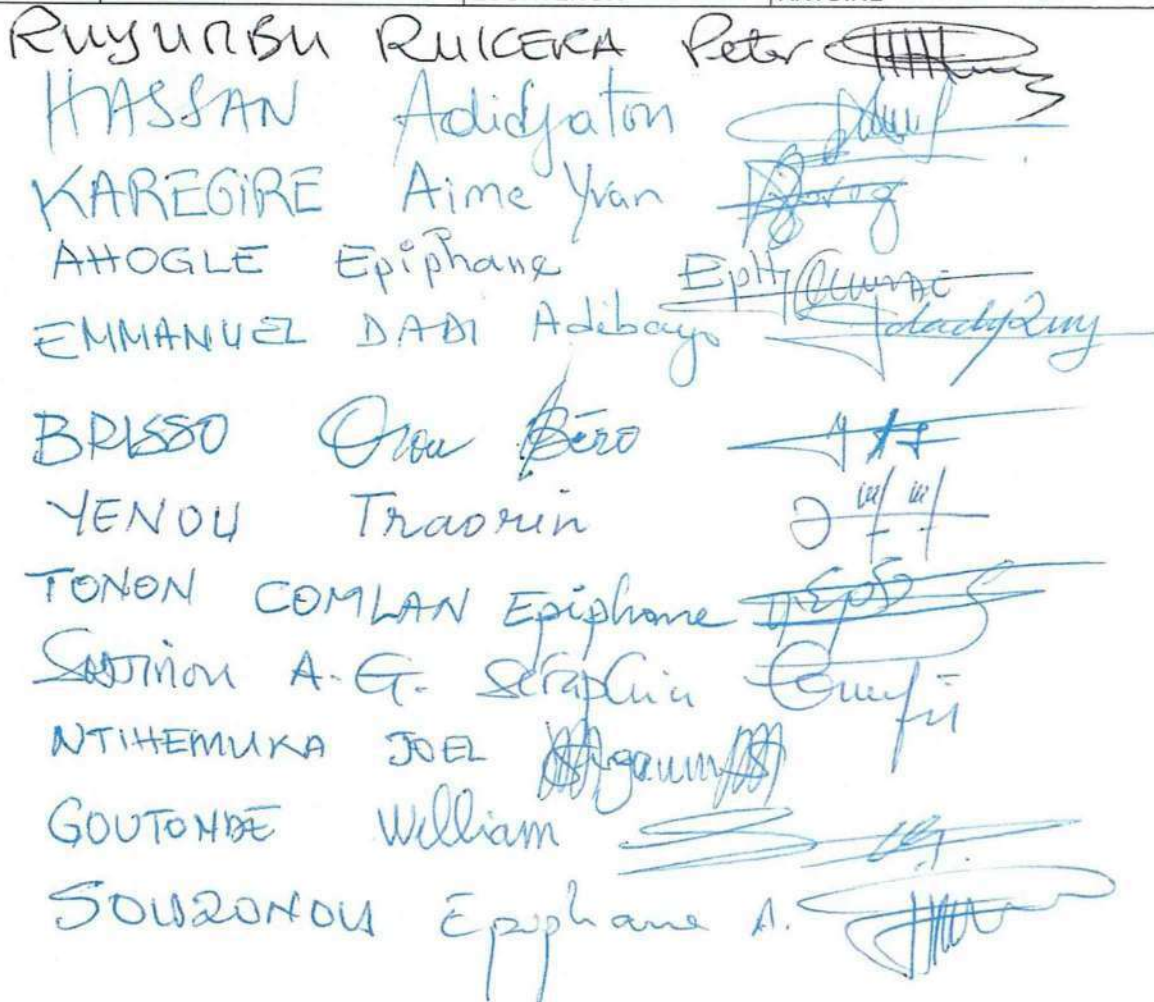 RUYURBU RUKERA Peter
HASSAN Adidjaton
KAREGIRE Aime Yvan
AHOGLE Epiphane
EMMANUEL DADI Adebayo
BRISSO Orou Béro
YENOU Traorin
TONON COMLAN Epiphane
A. G. Séraphin
NTIHEMUKA JOEL
GOUTONDÉ William
SOUZONOU Epiphane A.